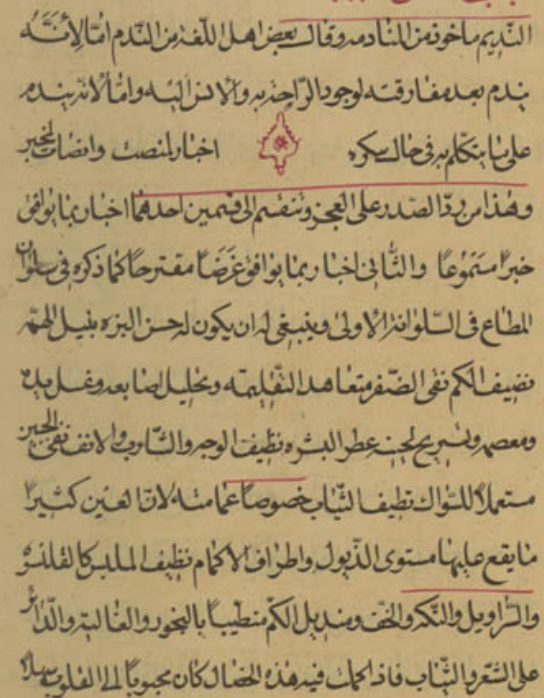 النديم ماخوذ من المنادمه وقال بعض اهل اللغة من الندم امّا لانّه
يندم بعد مفارقته لوجود الراحة به والانس اليه وامّا لانه يندم
على ما يتكلم به فى حال سكره اخبار لمنصت وانصات لمخبر
وهذا من ردّ الصدر على العجز وتنقسم الى قسمين احدهما اخبار بما يوافق
خبرًا مستموعًا والثانى اخبار بما يوافق غرضًا مقترحًا كما ذكره فى سلوان
المطاع فى السلوانة الاولى وينبغى له ان يكون له حسن البزه بنيل الهمّه
نضيف الكم نقى متعاهد التقليمه وتحليل اصابعه وغسل يديه
ومعصمه وتسريح لحيته عطر البشره نظيف الوجه والشارب والانف نقى الجبين
مستعملًا للسواك نظيف الثياب خصوصًا عمامته لانّ العين كثيرًا
ما يقع عليها مستوى الذيول واطراف الاكمام نظيف الملبس كالقلنسوه
والسّراويل والتكه والخف ومنديل الكم متطيبًا بالبخور والغاليه والذرائر
على الشعر والثياب فاذا كملت فيه هذه الخصال كان محبوبًا الى القلوب